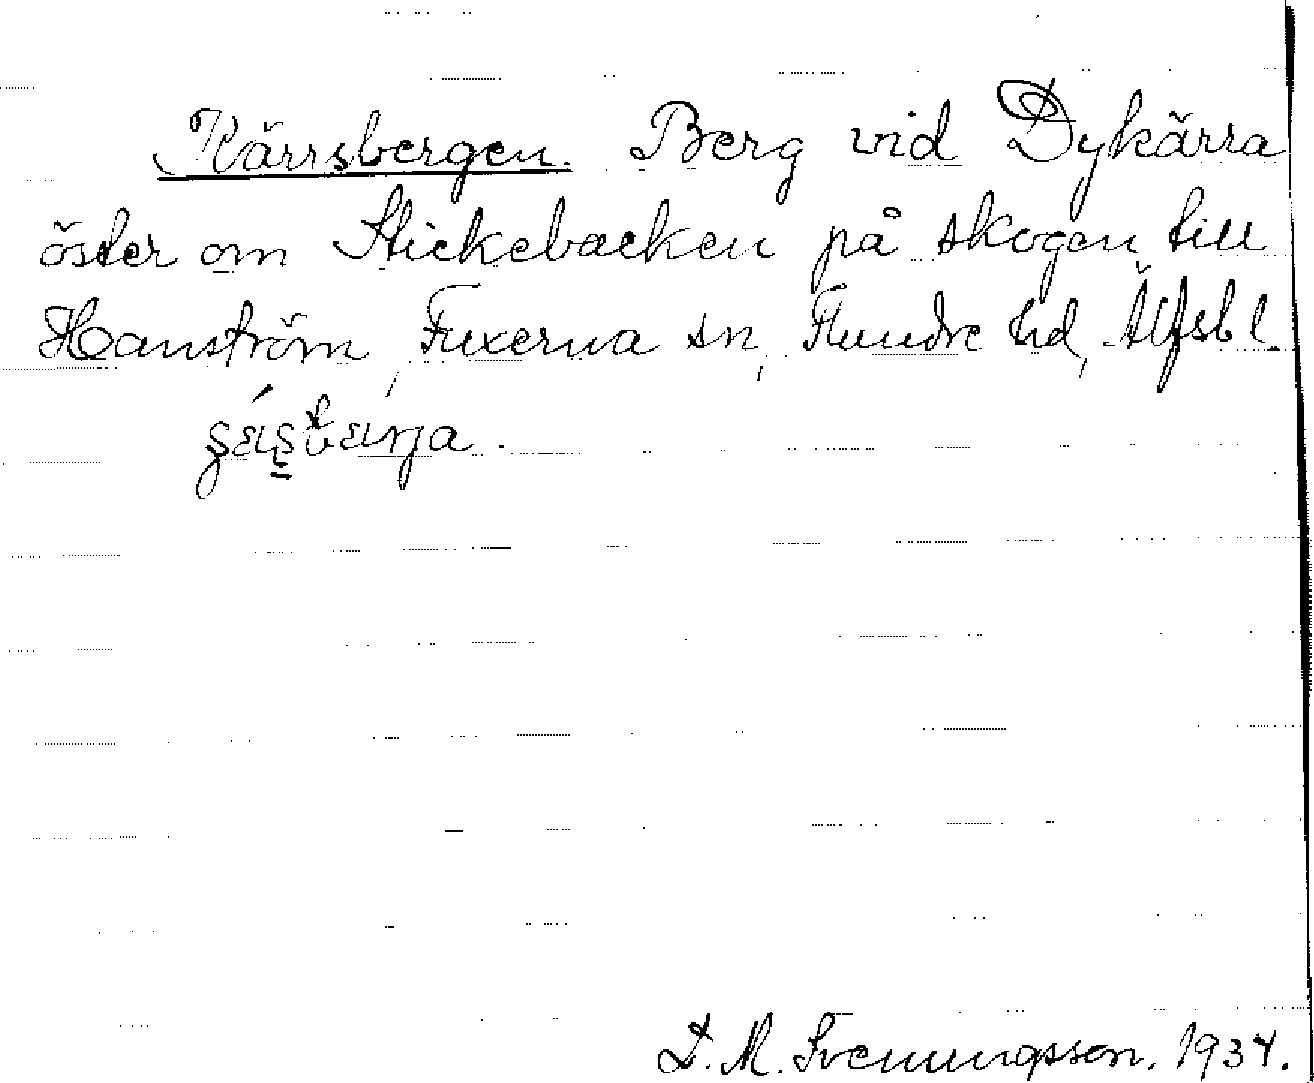 Kärrsbergen. Berg vid Dykärra
öster om Stickebacken på skogen till
Hanström, Fuxerna sn, Flundre hd, Älfsb l.
D. M. Svenungsson. 1934.